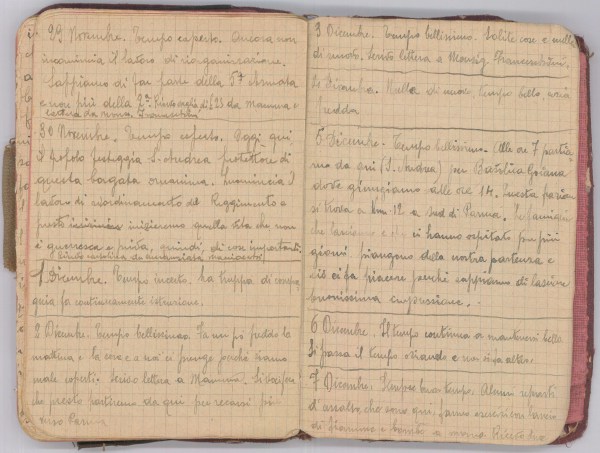 29 Novembre. Tempo coperto. Ancora non
incomincia il lavoro di riorganizzazione.
Sappiamo di far parte della 5ª Armata
e non più della 2ª.
30 Novembre. Tempo coperto. Oggi qui
il popolo festeggia S. Andrea protettore di
questa borgata omonima. Incomincia il
lavoro di riordinamento del Reggimento e
presto inizieremo quella vita che non
è guerresca e priva, quindi, di cose importanti.
1 Dicembre. Tempo incerto. La truppa di
fa continuamente istruzione.
2 Dicembre. Tempo bellissimo. Fa un pò freddo la
mattina e la sera e a noi ci perchè siamo
male coperti. Scrivo lettera a Mammà. Si
che presto partiremo da qui per recarci
verso Parma
3 Dicembre. Tempo bellissimo. Solite cose e nulla
di nuovo. Scrivo lettera a Monsig. Franceschini.
4 Dicembre. Nulla di nuovo, tempo bello, aria
fredda
5 Dicembre. Tempo bellissimo. Alle ore 7 partia-
mo da qui (S. Andrea) per Basilica Goiana
dove giungiamo alle ore 14. Questo paese
si trova a km. 12 a sud di Parma. Le famiglie
che lasciamo e che ci hanno ospitato per più
giorni piangono della nostra partenza e
ciò ci fa piacere perchè sappiamo di lasciare
buonissima impressione.
6 Dicembre. Il tempo continua a mantenersi bello
Si passa il tempo oziando e non si fa altro.
7 Dicembre. Sempre buon tempo. Alcuni reparti
d'assalto, che sono qui, fanno esercizioni
di fiamme e bombe a mano